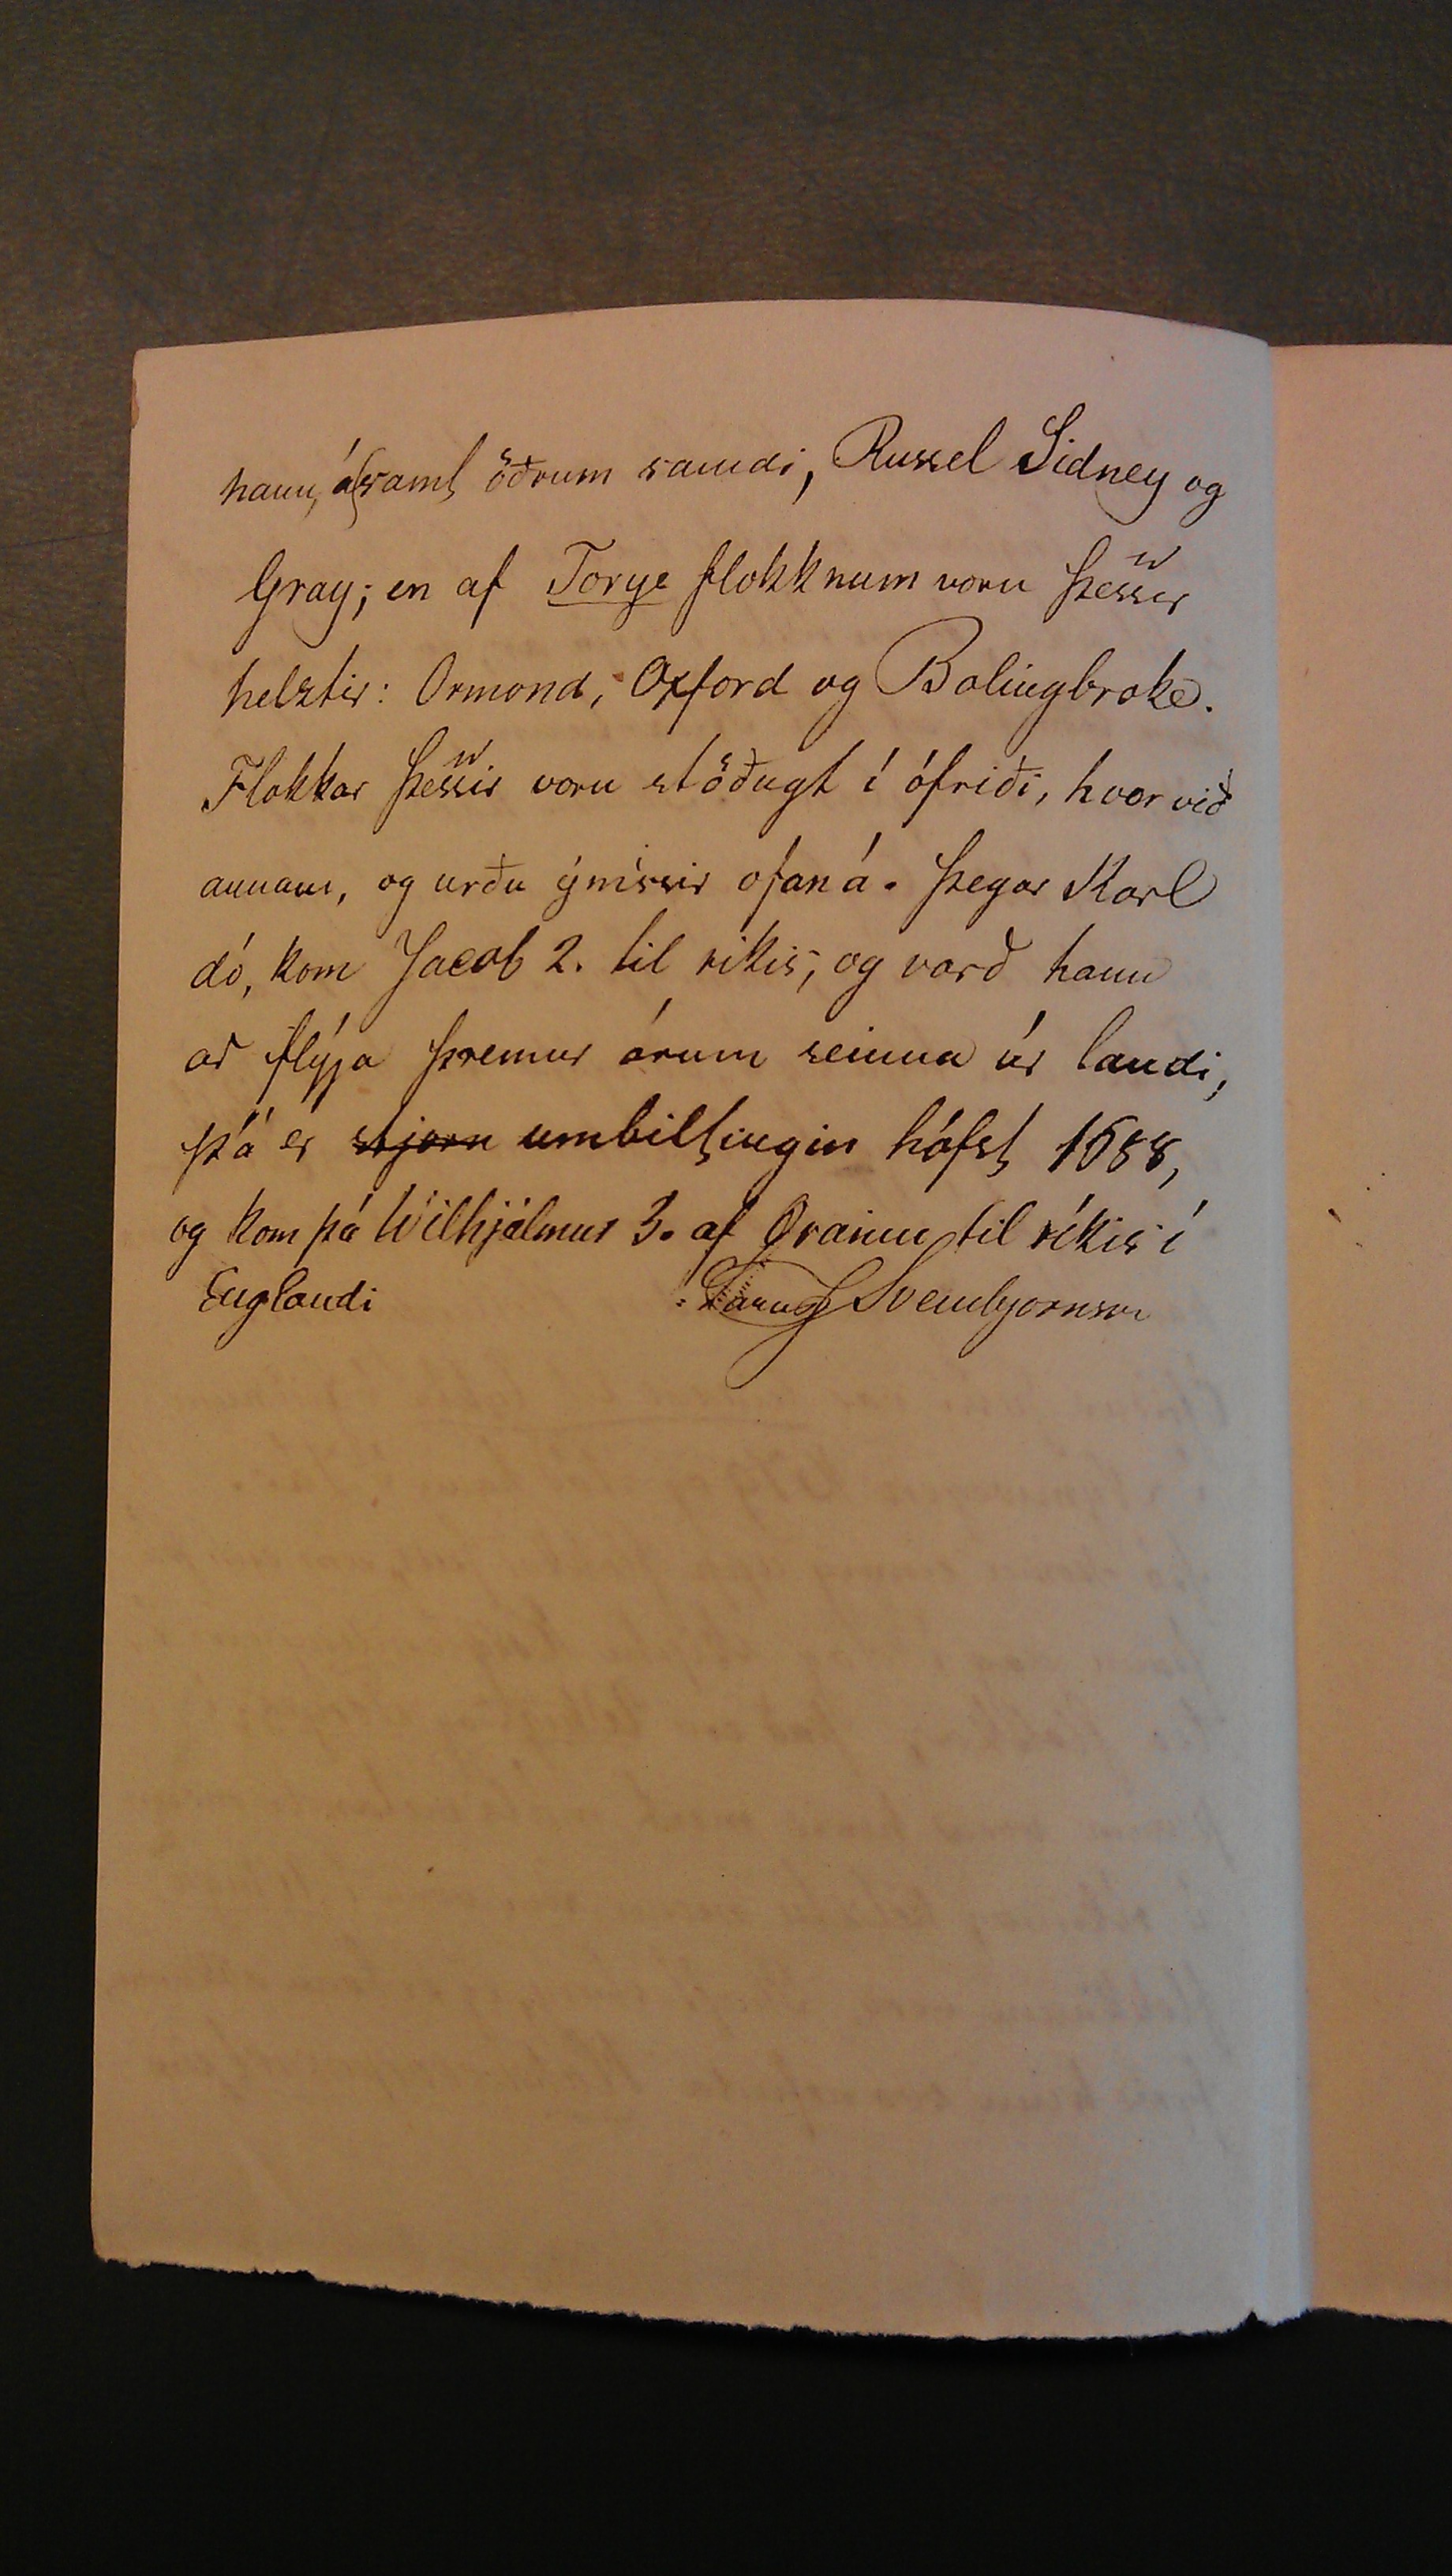 hann, ásamt öðrum samdi, Russel Sidney og
Gray; en af Torye flokknum voru þessir
helztir: Ormond, Oxford og Bolingbroke.
Flokkar þessir voru stöðugt í ófriði, hvor við
annann, og urðu ýmissir ofaná. Þegar Karl
dó, kom Jacob 2. til rikis, og varð hann
að flýja þremur árum seinna úr landi,
þá er stjorn umbiltingin hófst 1688,
og kom þá Wilhjálmur 3. af Oraniu til ríkis í
Englandi
Lárus Sveinbjornson